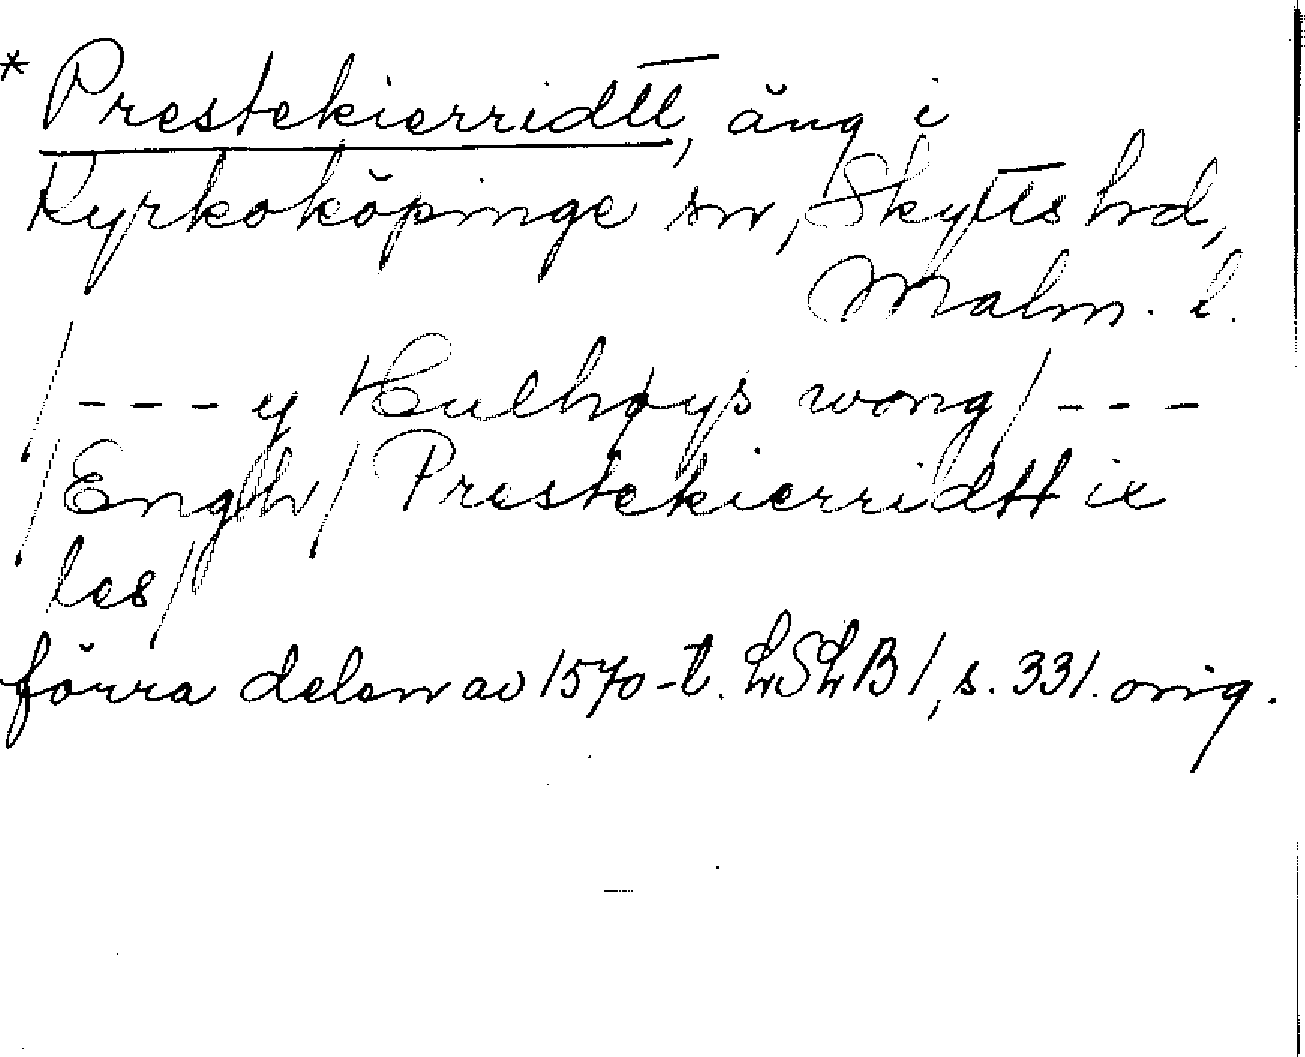 * Prestekierridtt, äng i
Kyrkoköpinge sn, Skytts hd,
Malm. l.
/--- y Hulhøys wong/ ---
/Engh/ Prestekierridtt ix
les/
förra delen av 1570-t. LSLB 1, s. 331. orig.